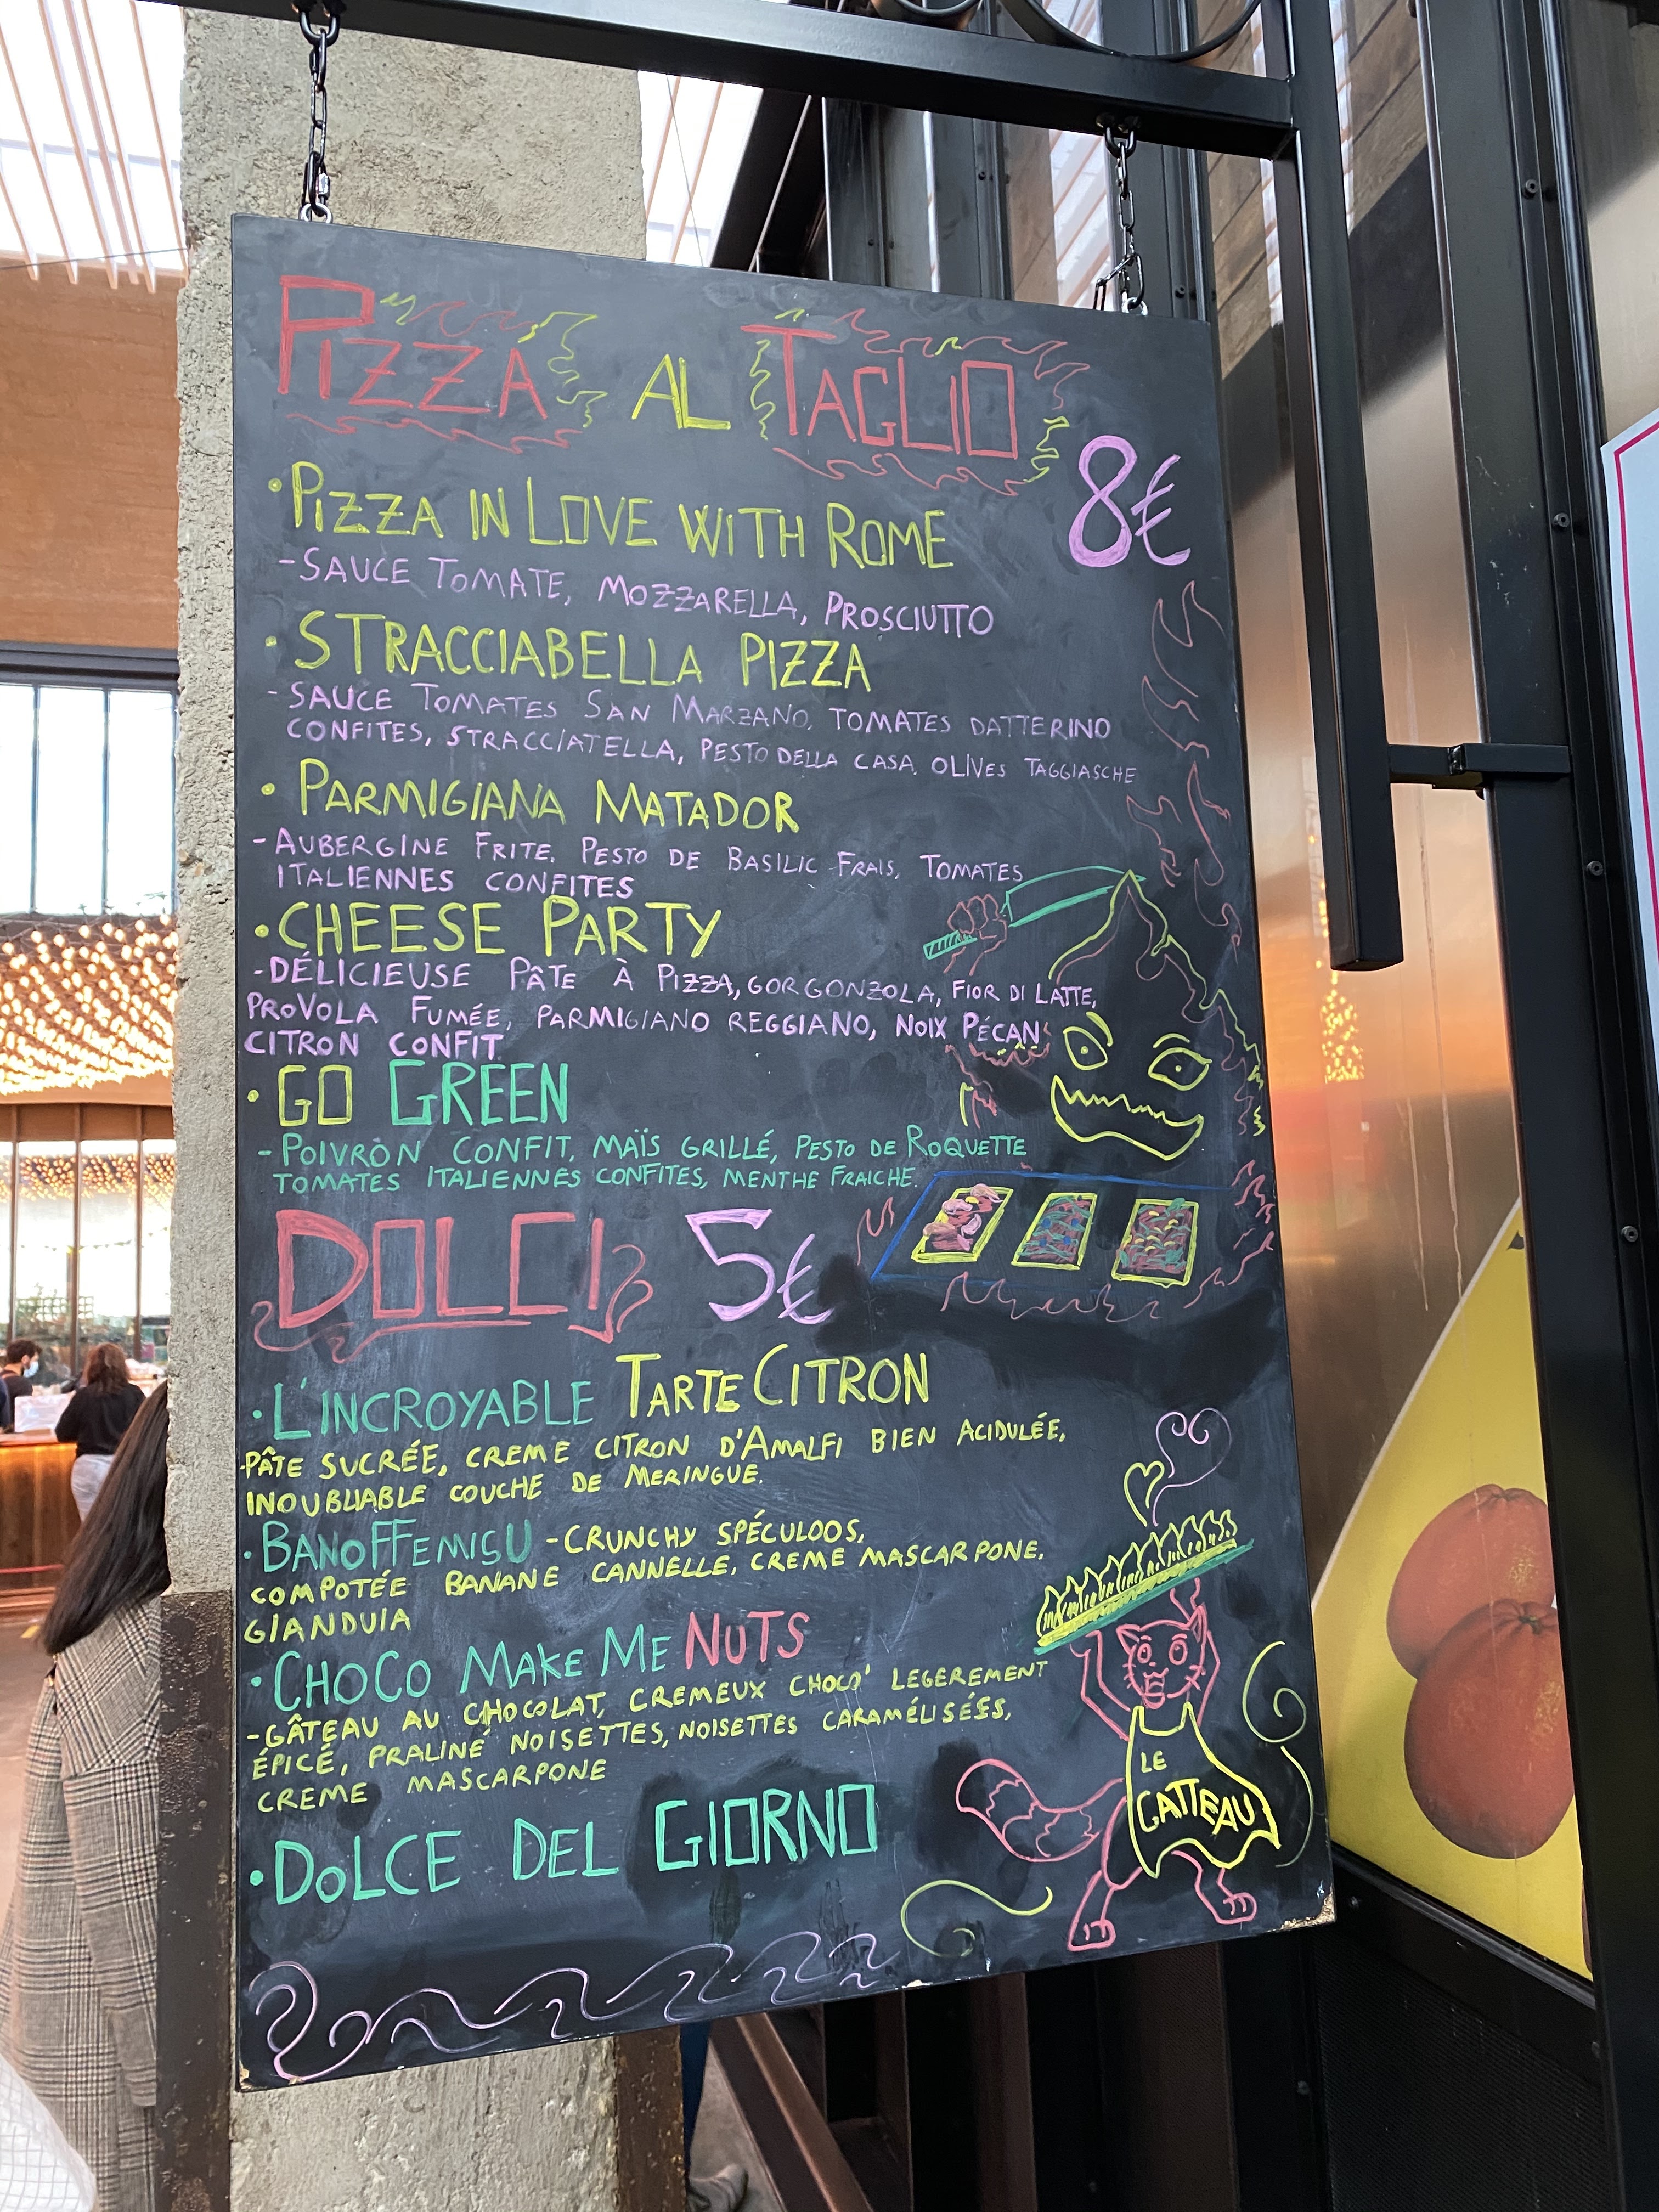 PIZZA AL TAGLIO
8€
• PIZZA IN LOVE WITH ROME
- SAUCE TOMATE, MOZZARELLA, PROSCIUTTO
• STRACCIABELLA PIZZA
- SAUCE TOMATES SAN MARZANO, TOMATES DATTERINO
CONFITES, STRACCIATELLA, PESTO DELLA CASA, OLIVES TAGGIASCHE
• PARMIGIANA MATADOR
- AUBERGINE FRITE, PESTO DE BASILIC FRAIS, TOMATES
ITALIENNES CONFITES
• CHEESE PARTY
- DÉLICIEUSE PÂTE À PIZZA, GORGONZOLA, FIOR DI LATTE,
PROVOLA FUMÉE, PARMIGIANO REGGIANO, NOIX PÉCAN
CITRON CONFIT
• GO GREEN
- POIVRON CONFIT, MAÏS GRILLÉ, PESTO DE ROQUETTE
TOMATES ITALIENNES CONFITES, MENTHE FRAICHE.
DOLCI 5€
• L'INCROYABLE TARTE CITRON
- PÂTE SUCRÉE, CREME CITRON D'AMALFI BIEN ACIDULÉE,
INOUBLIABLE COUCHE DE MERINGUE.
• BANOFFEMISU - CRUNCHY SPÉCULOOS,
COMPOTÉE BANANE CANNELLE, CREME MASCARPONE,
GIANDUIA
• CHOCO MAKE ME NUTS
- GÂTEAU AU CHOCOLAT, CREMEUX CHOCO' LEGEREMENT
ÉPICÉ, PRALINÉ NOISETTES, NOISETTES CARAMÉLISÉES,
CREME MASCARPONE
• DOLCE DEL GIORNO
LE
GATTEAU